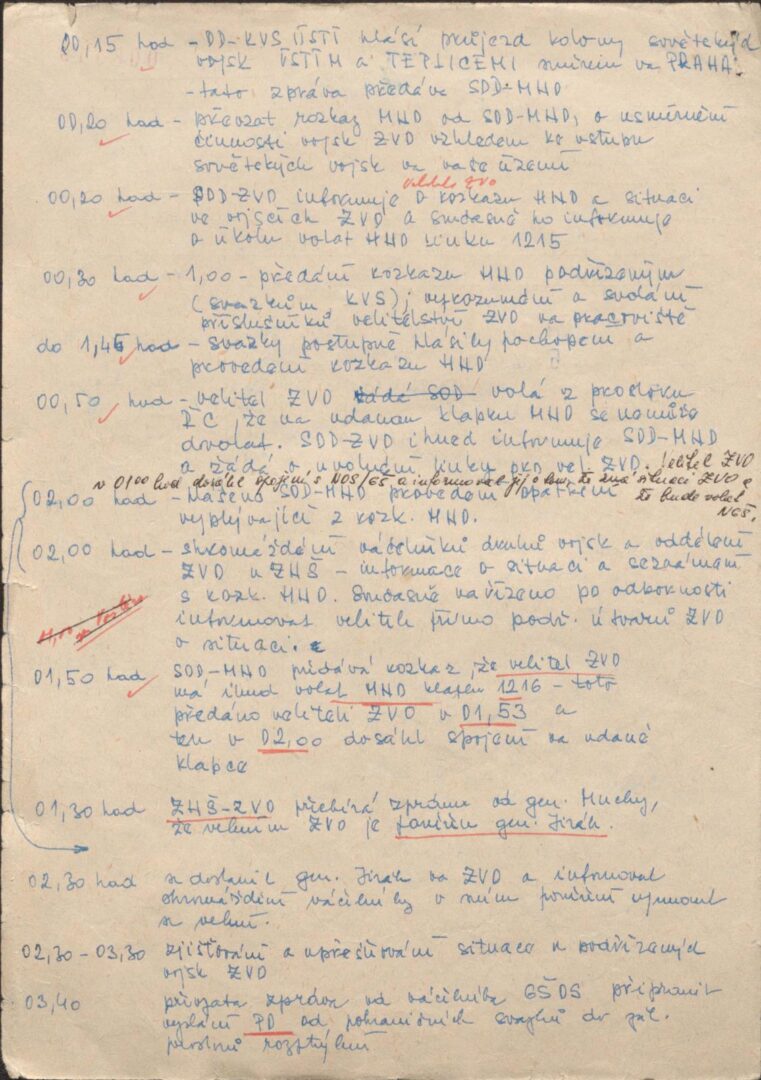 00,15 hod - DD-KVS ÚSTÍ hlásí průjezd kolony sovětských
vojsk ÚSTÍM a TEPLICEMI směrem na PRAHA.
- tato zpráva předána SDD-MNO
00,20 hod - převzat rozkaz MNO od SDD-MNO, o usměrnění
činnosti vojsk ZVO vzhledem ke vstupu
sovětských vojsk na naše území
velitele ZVO
00,20 hod - SDD-ZVO informuje o rozkazu MNO a situaci
ve vojscích ZVO a současně ho informuje
o úkolu volat MNO linku 1215
00,30 hod - 1,00 - předání rozkazu MNO podřízeným
(svazkům, KVS); vyrozumění a svolání
příslušníků velitelství ZVO na pracoviště
do 1,45 hod - svazky postupně hlásily pochopení a
provedení rozkazu MNO
00,50 hod - velitel ZVO žádá SOD volá z prostoru
že na udanou klapku MNO se nemůže
dovolat. SDD-ZVO ihned informuje SDD-MNO
a žádá o uvolnění linky pro vel. ZVO. Velitel ZVO
v 0100 hod dosáhl spojení s NOS/GŠ a informoval jej o tom, že zná situaci ZVO a
že bude volat
NGŠ.
02,00 hod - hlášeno SDD-MNO provedení opatření
vyplývající z rozk. MNO.
02,00 hod - shromáždění náčelníků druhů vojsk a oddělení
ZVO u ZNŠ - informace o situaci a seznámení
s rozk. MNO. Současně nařízeno po odbornosti
informovat velitele přímo podř. útvarů ZVO
o situaci.
01,50 hod SDD-MNO předává rozkaz, že velitel ZVO
má ihned volat MNO klapku 1216 - toto
předáno veliteli ZVO v 01,53 a
ten v 02,00 dosáhl spojení na udané
klapce
01,30 hod ZNŠ-ZVO přebírá zprávu od gen. Muchy,
že velením ZVO je pověřen gen. Jirák.
02,30 hod se dostavil gen. Jirák na ZVO a informoval
shromáždění náčelníky o svém pověření ujmout
se velení.
02,30 - 03,30 zjišťování a upřesňování situace u podřízených
vojsk ZVO
03,40 přijata zpráva od náčelníka GŠOS připravit
vyslání PD od pohraničních svazků do zál.
prostorů rozptýlení